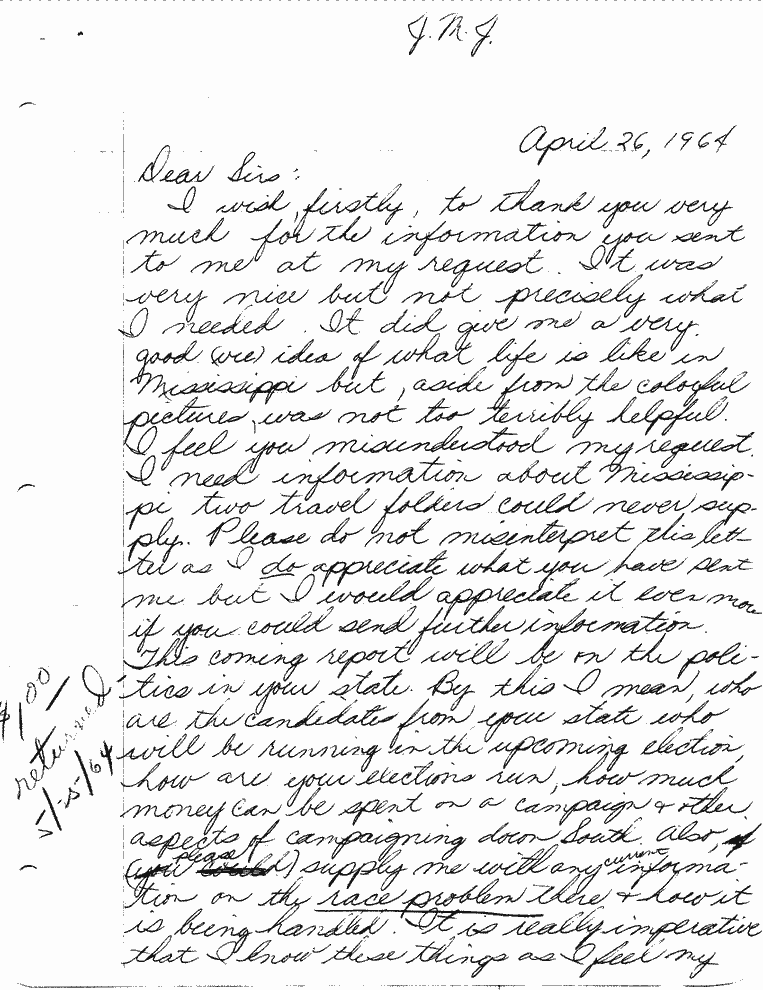 J.M.J.
April 26, 1964
Dear Sirs:
I wish, firstly, to thank you very
much for the information you sent
to me at my request. It was
very nice but not precisely what
I needed. It did give me a very
good (vie) idea of what life is like in
Mississippi but, aside from the colorful
pictures, was not too terribly helpful.
I feel you misunderstood my request.
I need information about Mississip-
pi two travel folders could never sup-
ply. Please do not misinterpret this let-
ter as I do appreciate what you have sent
me but I would appreciate it even more
if you could send further information.
This coming report will be on the poli-
tics in your state. By this I mean, who
are the candidates from your state who
will be running in the upcoming election,
how are your elections run, how much
money can be spent on a campaign & other
aspects of campaigning down South. Also, if
(you could) please supply me with any current informa-
tion on the race problem there & how it
is being handled. It is really imperative
that I know these things as I feel my
$1.00
returned
5/15/64